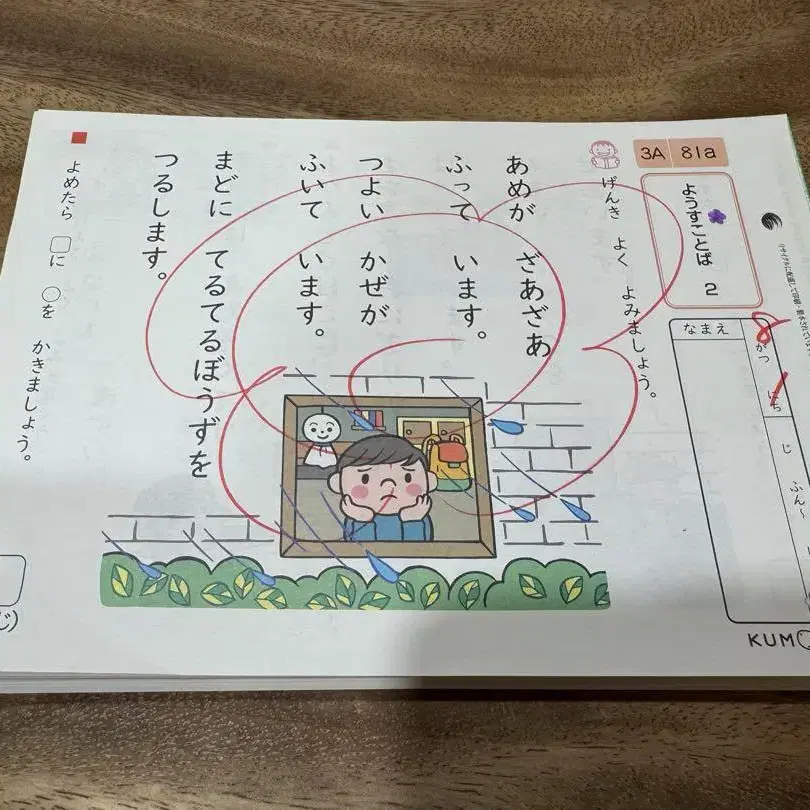 3A 81a
ようすことば 2
げんき よく よみましょう。
あめが ざあざあ
ふって います。
つよい かぜが
ふいて います。
まどに てるてるぼうずを
つるします。
よめたら □に ○を かきましょう。
なまえ
8がつ 1にち
じ ふん〜
KUM